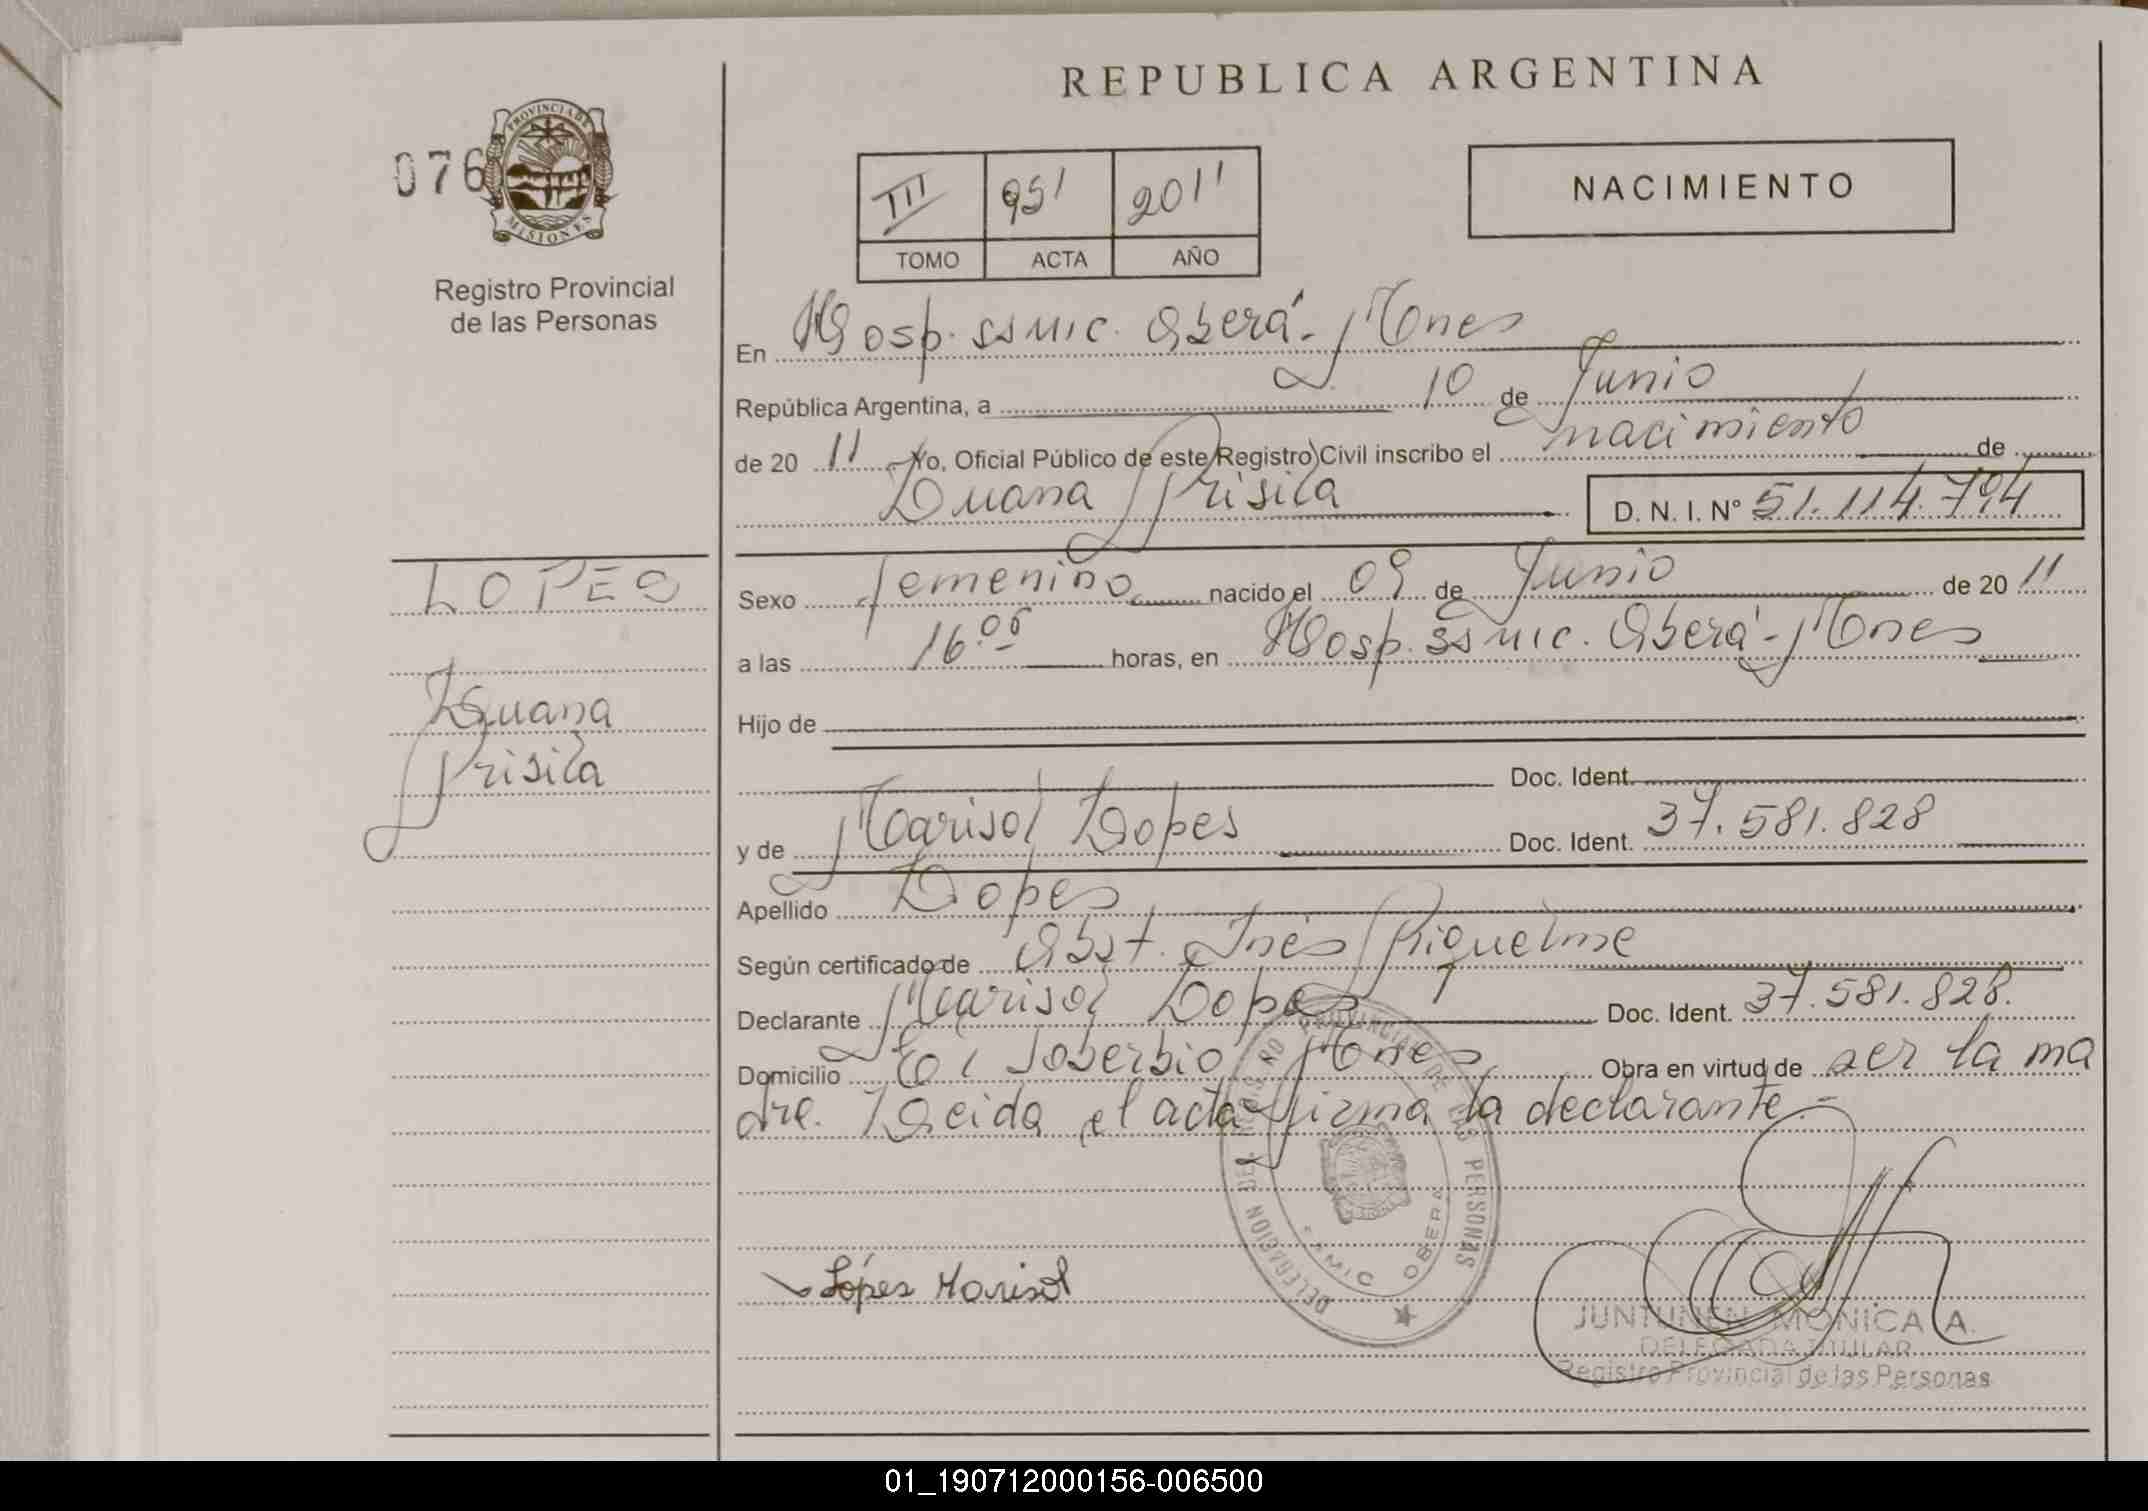 REPUBLICA ARGENTINA
076
PROVINCIA DE
MISIONES
Registro Provincial
de las Personas
III 951 2011
TOMO ACTA AÑO
NACIMIENTO
En Hosp. SSMIC. Oberá - Mnes
República Argentina, a 10 de Junio
de 20 11 Yo, Oficial Público de este Registro Civil inscribo el nacimiento de
Luana Prisila D. N. I. Nº 51.114.794
LOPES
Luana
Prisila
Sexo femenino nacido el 09 de Junio de 20 11
a las 16:05 horas, en Hosp. SSMIC. Oberá - Mnes
Hijo de
Doc. Ident.
y de Marisol Lopes Doc. Ident. 37.581.828
Apellido Lopes
Según certificado de Obst. Inés Riquelme
Declarante Marisol Lopes Doc. Ident. 37.581.828.
Domicilio El Soberbio Mnes Obra en virtud de ser la ma
dre. Leida el acta firma la declarante -
DELEGACION DEL REGISTRO PROVINCIAL DE LAS PERSONAS
OBERA
Lópes Marisol
JUNTUNEN MONICA A.
DELEGADA TITULAR
Registro Provincial de las Personas
01_190712000156-006500